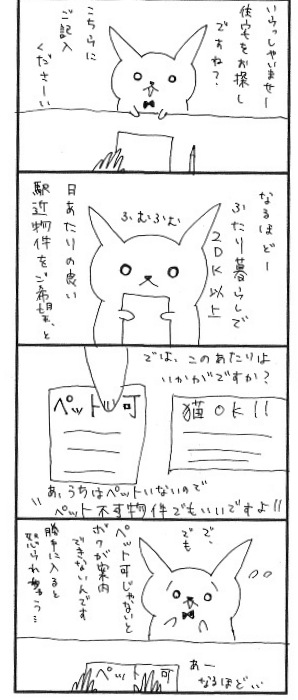 いらっしゃいませー
住宅をお探し
ですね？
こちらに
ご記入
くださーい
なるほどー
ふたり暮らしで
2DK以上
ふむふむ
日あたりの良い
駅近物件をご希望、と
では、このあたりは
いかがですか？
ペット可
猫OK!!
あ、うちはペットいないので
ペット不可物件でもいいですよ!!
で、
でも
ペット可じゃないと
ボクが案内
できないんです
勝手に入ると
怒られちゃう…
ペット可
あー
なるほどぃ